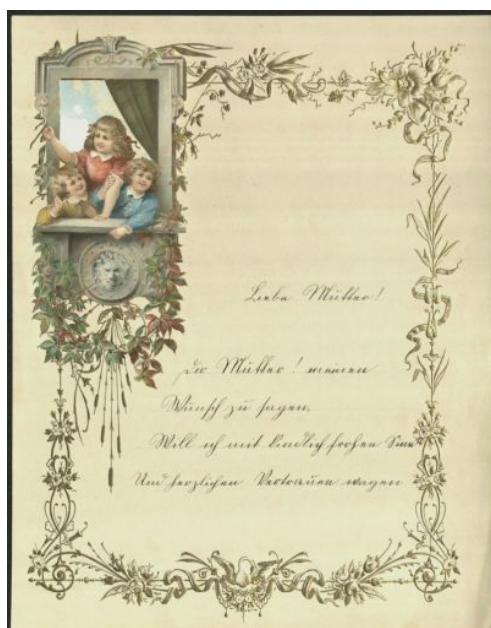 Liebe Mutter!
Dir Mutter! meinen
Wunsch zu sagen,
Will ich mit kindlich frohen Sinn
Und herzlichen Vertrauen wagen